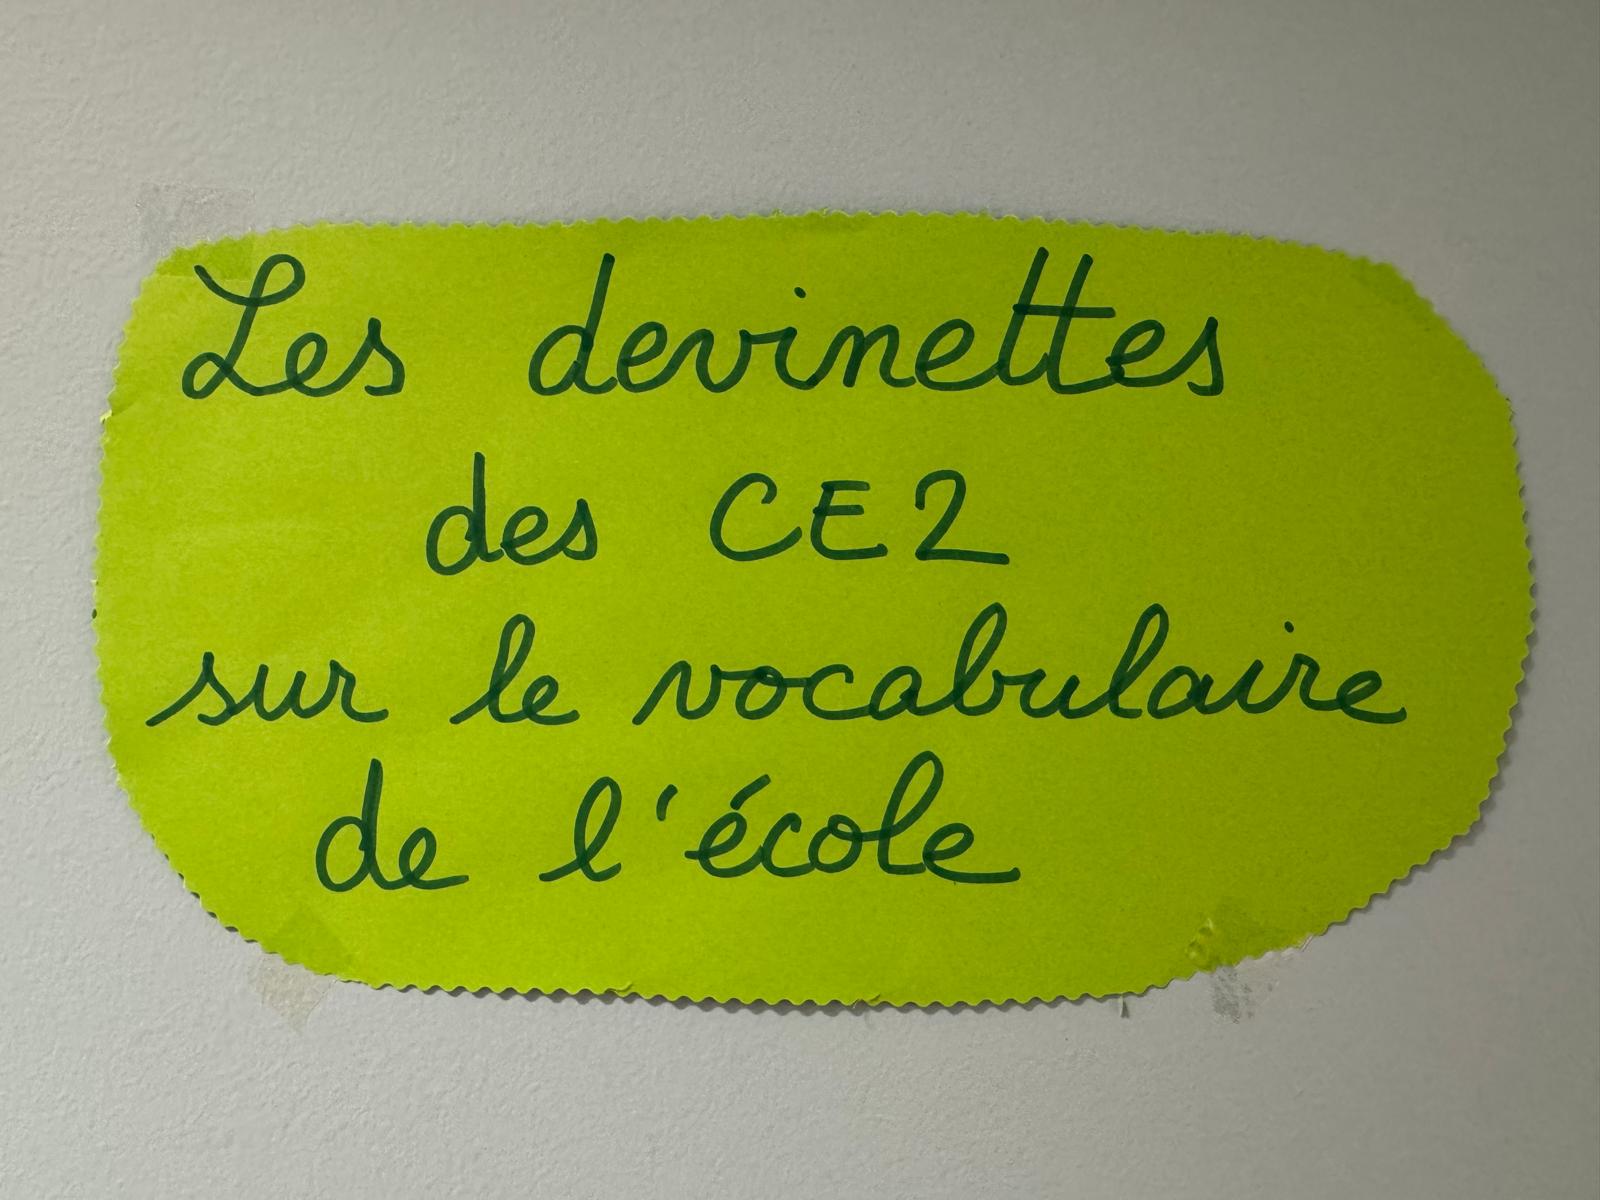 Les devinettes
des CE2
sur le vocabulaire
de l'école